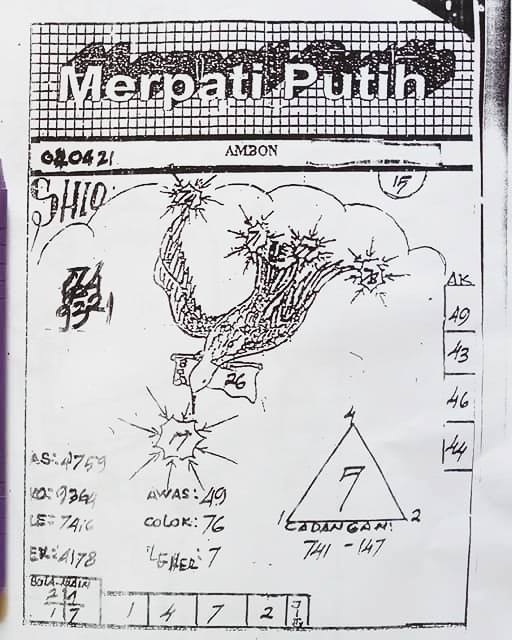 Merpati Putih
AMBON
020421
15
SHIO:
74
7
77
78
AK
49
43
46
44
26
17
4
7
1
2
AS: 4759
KO: 9364
LE: 7416
EK: 4178
AWAS: 49
COLOK: 76
LEHER: 7
CADANGAN:
741 - 147
BOLA-MAIN
2 1
1 7
1 4 7 2